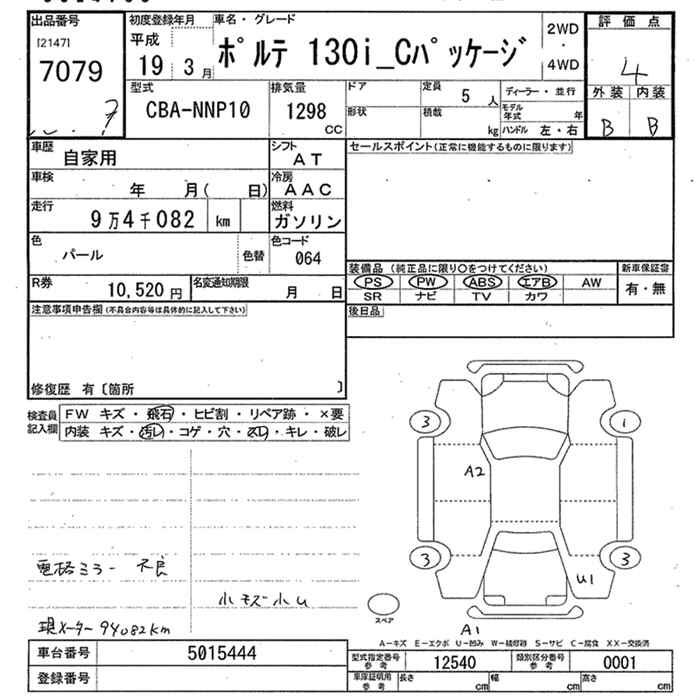 出品番号
[2147]
7079
初度登録年月
平成
19 3月
車名・グレード
ポルテ 130i_Cパッケージ
2WD
・
4WD
評価点
4
外装 内装
B B
型式
CBA-NNP10
排気量
1298
CC
ドア
形状
定員
5 人
積載
kg
ディーラー・並行
モデル年式 年
ハンドル 左・右
車歴
自家用
シフト
AT
車検
年 月( 日)
冷房
AAC
走行
9万4千082 km
燃料
ガソリン
色
パール
色替
色コード
064
R券
10,520 円
名変通知期限
月 日
セールスポイント(正常に機能するものに限ります)
装備品(純正品に限り○をつけてください)
新車保証書
PS PW ABS エアB AW
SR ナビ TV カワ
有・無
後日品
注意事項申告欄(不具合内容等は具体的に記入して下さい)
修復歴 有〔箇所 〕
検査員記入欄
FW キズ・飛石・ヒビ割・リペア跡・×要
内装 キズ・汚レ・コゲ・穴・スレ・キレ・破レ
3 1
A2
3 3
U1
スペア
A1
電格ミラー 不良
小キズ小U
現メーター94082km
A-キズ E-エクボ U-凹み W-補修跡 S-サビ C-腐食 XX-交換済
車台番号
5015444
登録番号
型式指定番号
参考
12540
類別区分番号
参考
0001
車庫証明用
参考
長さ cm
幅 cm
高さ cm